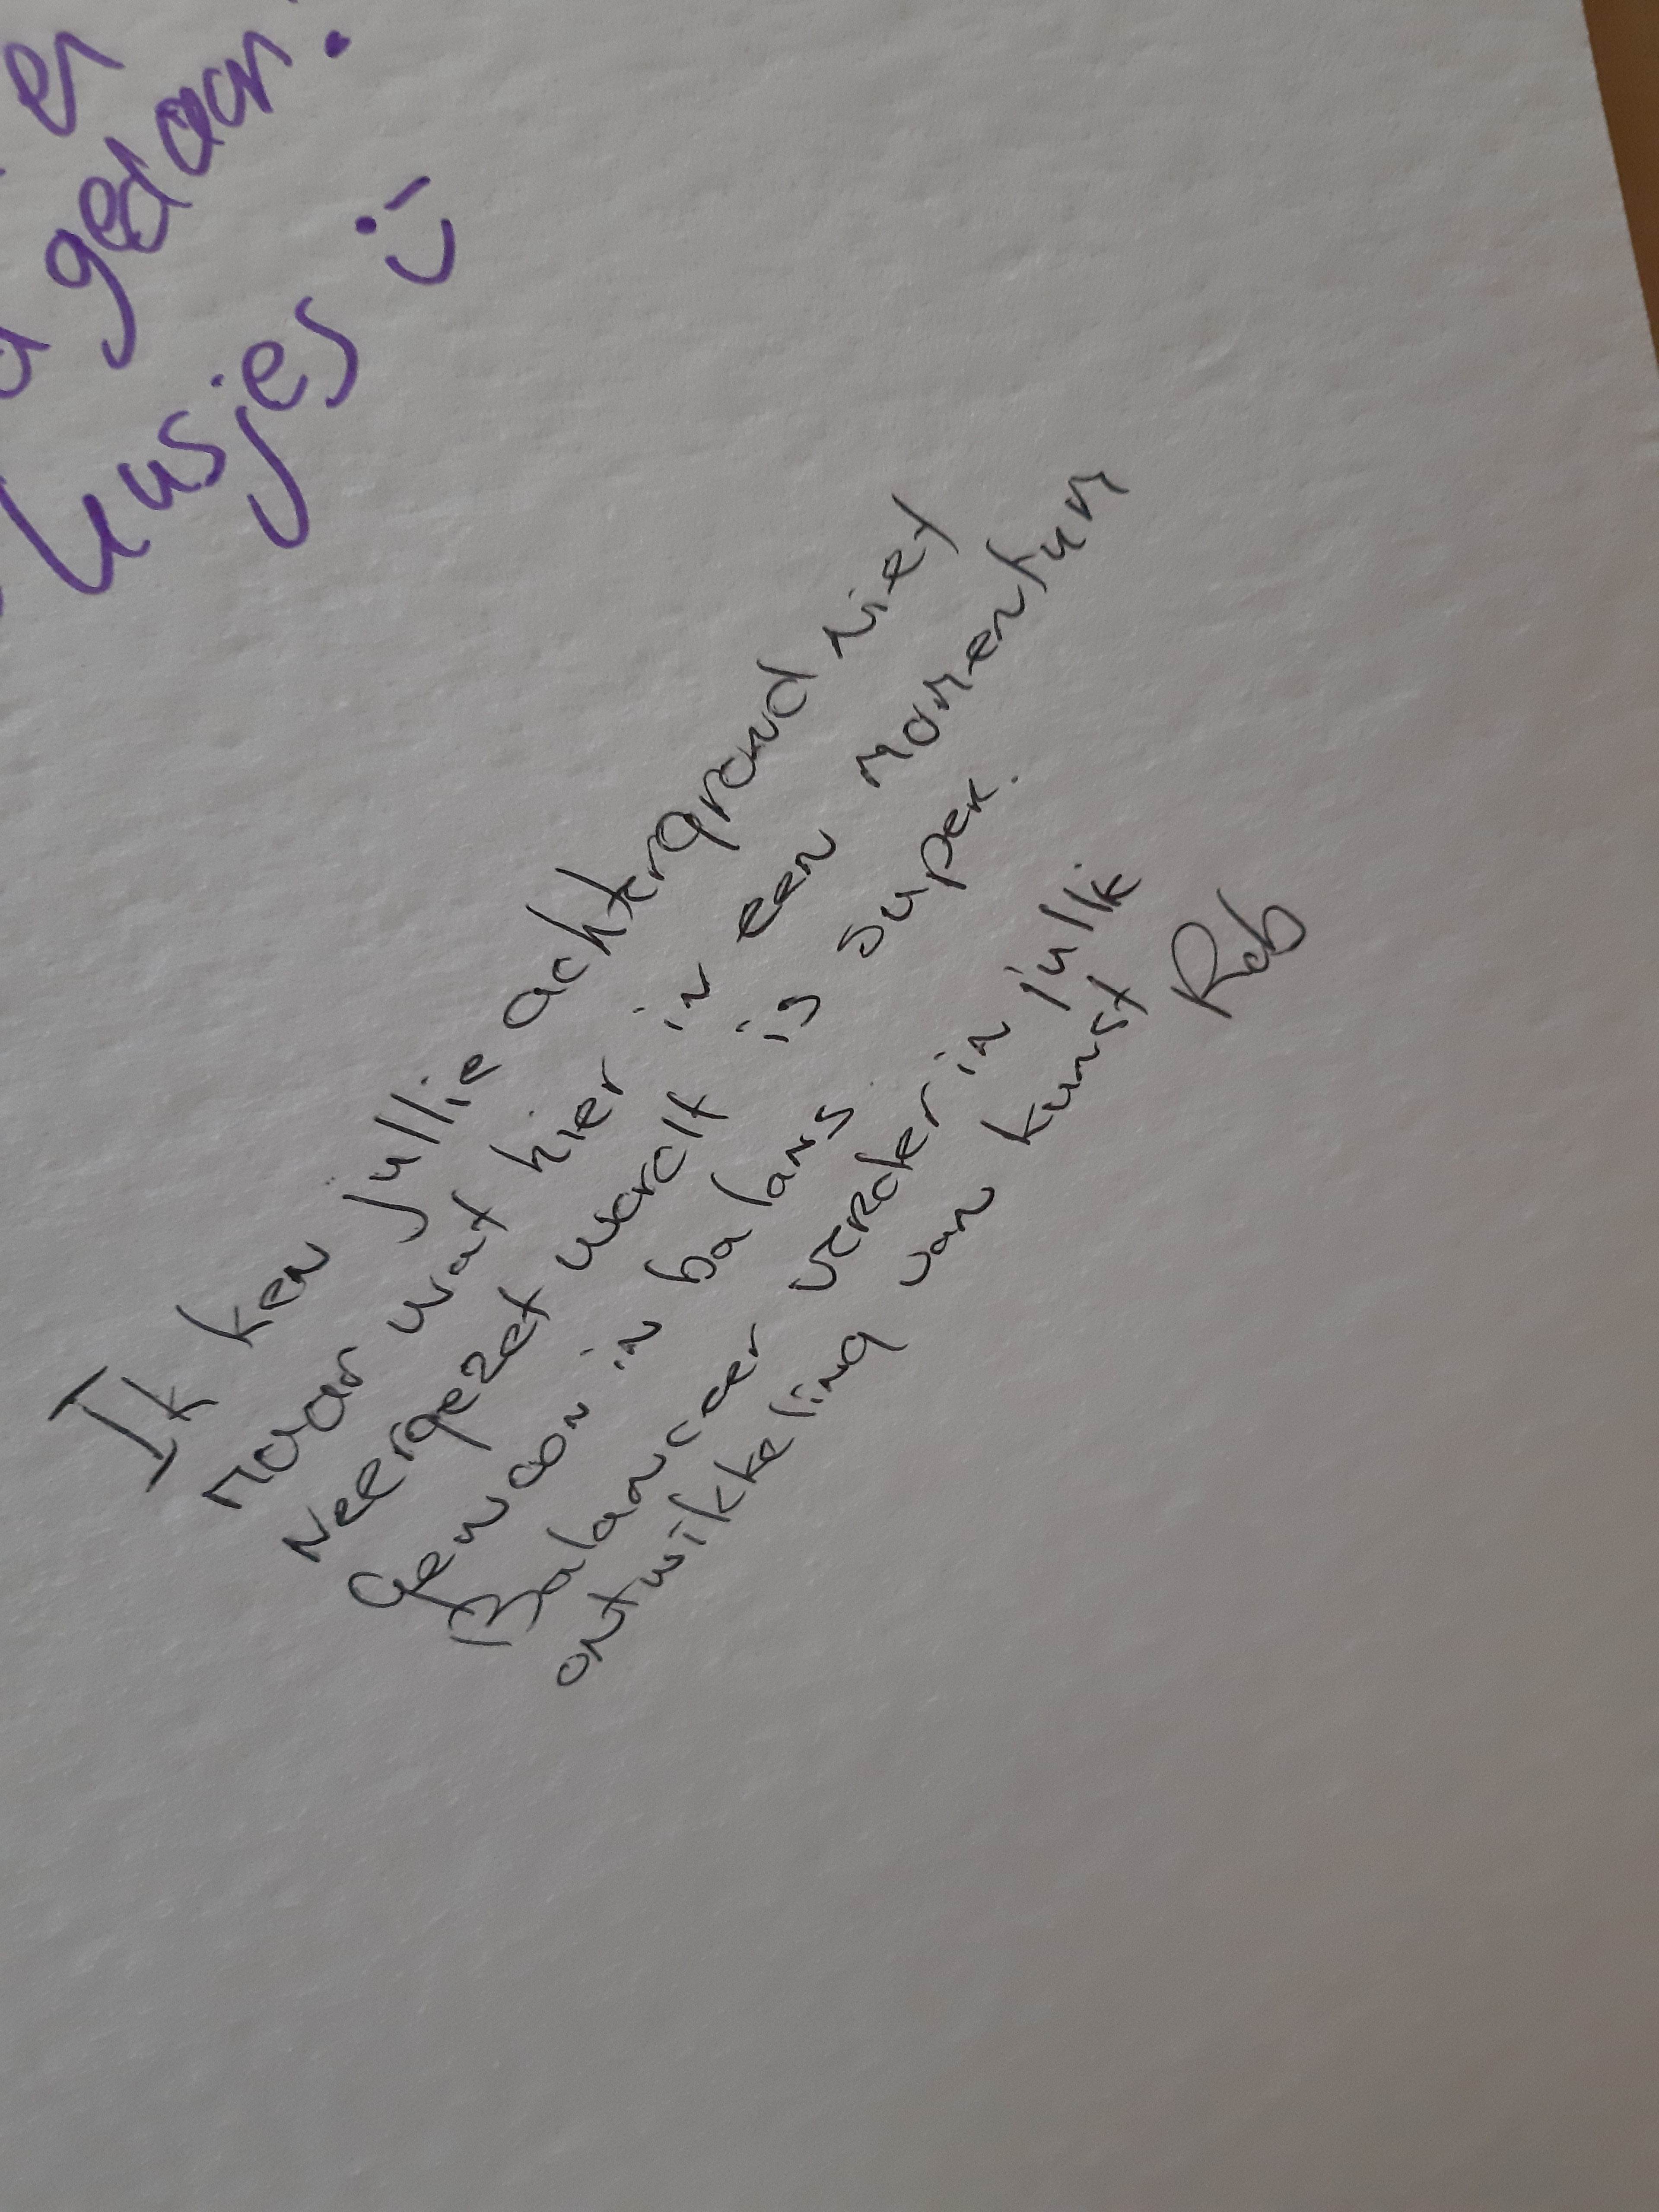 er
gedaan!
kusjes :)
Ik ken jullie achtergrond niet
maar wat hier in een momentum
neergezet wordt is super.
Gewoon in balans
Balanceer verder in jullie
ontwikkeling van kunst
Rob